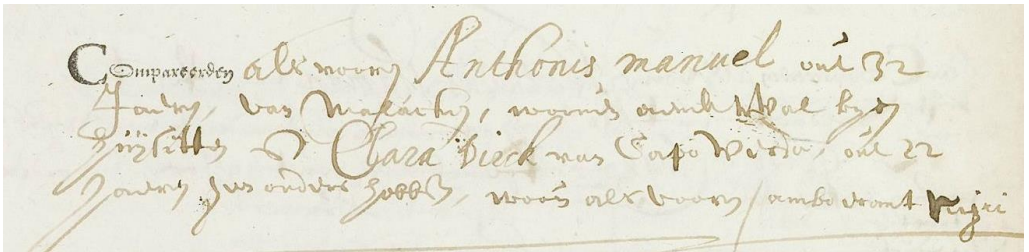 Compareerden als vooren Anthonis manuel out 32
Jaeren, van Malacken, woonen aende Wal by
huysitten & Clara Dirck van Capo Verda, out 22
Jaeren geen ouders hebben, woont als vooren / ambo